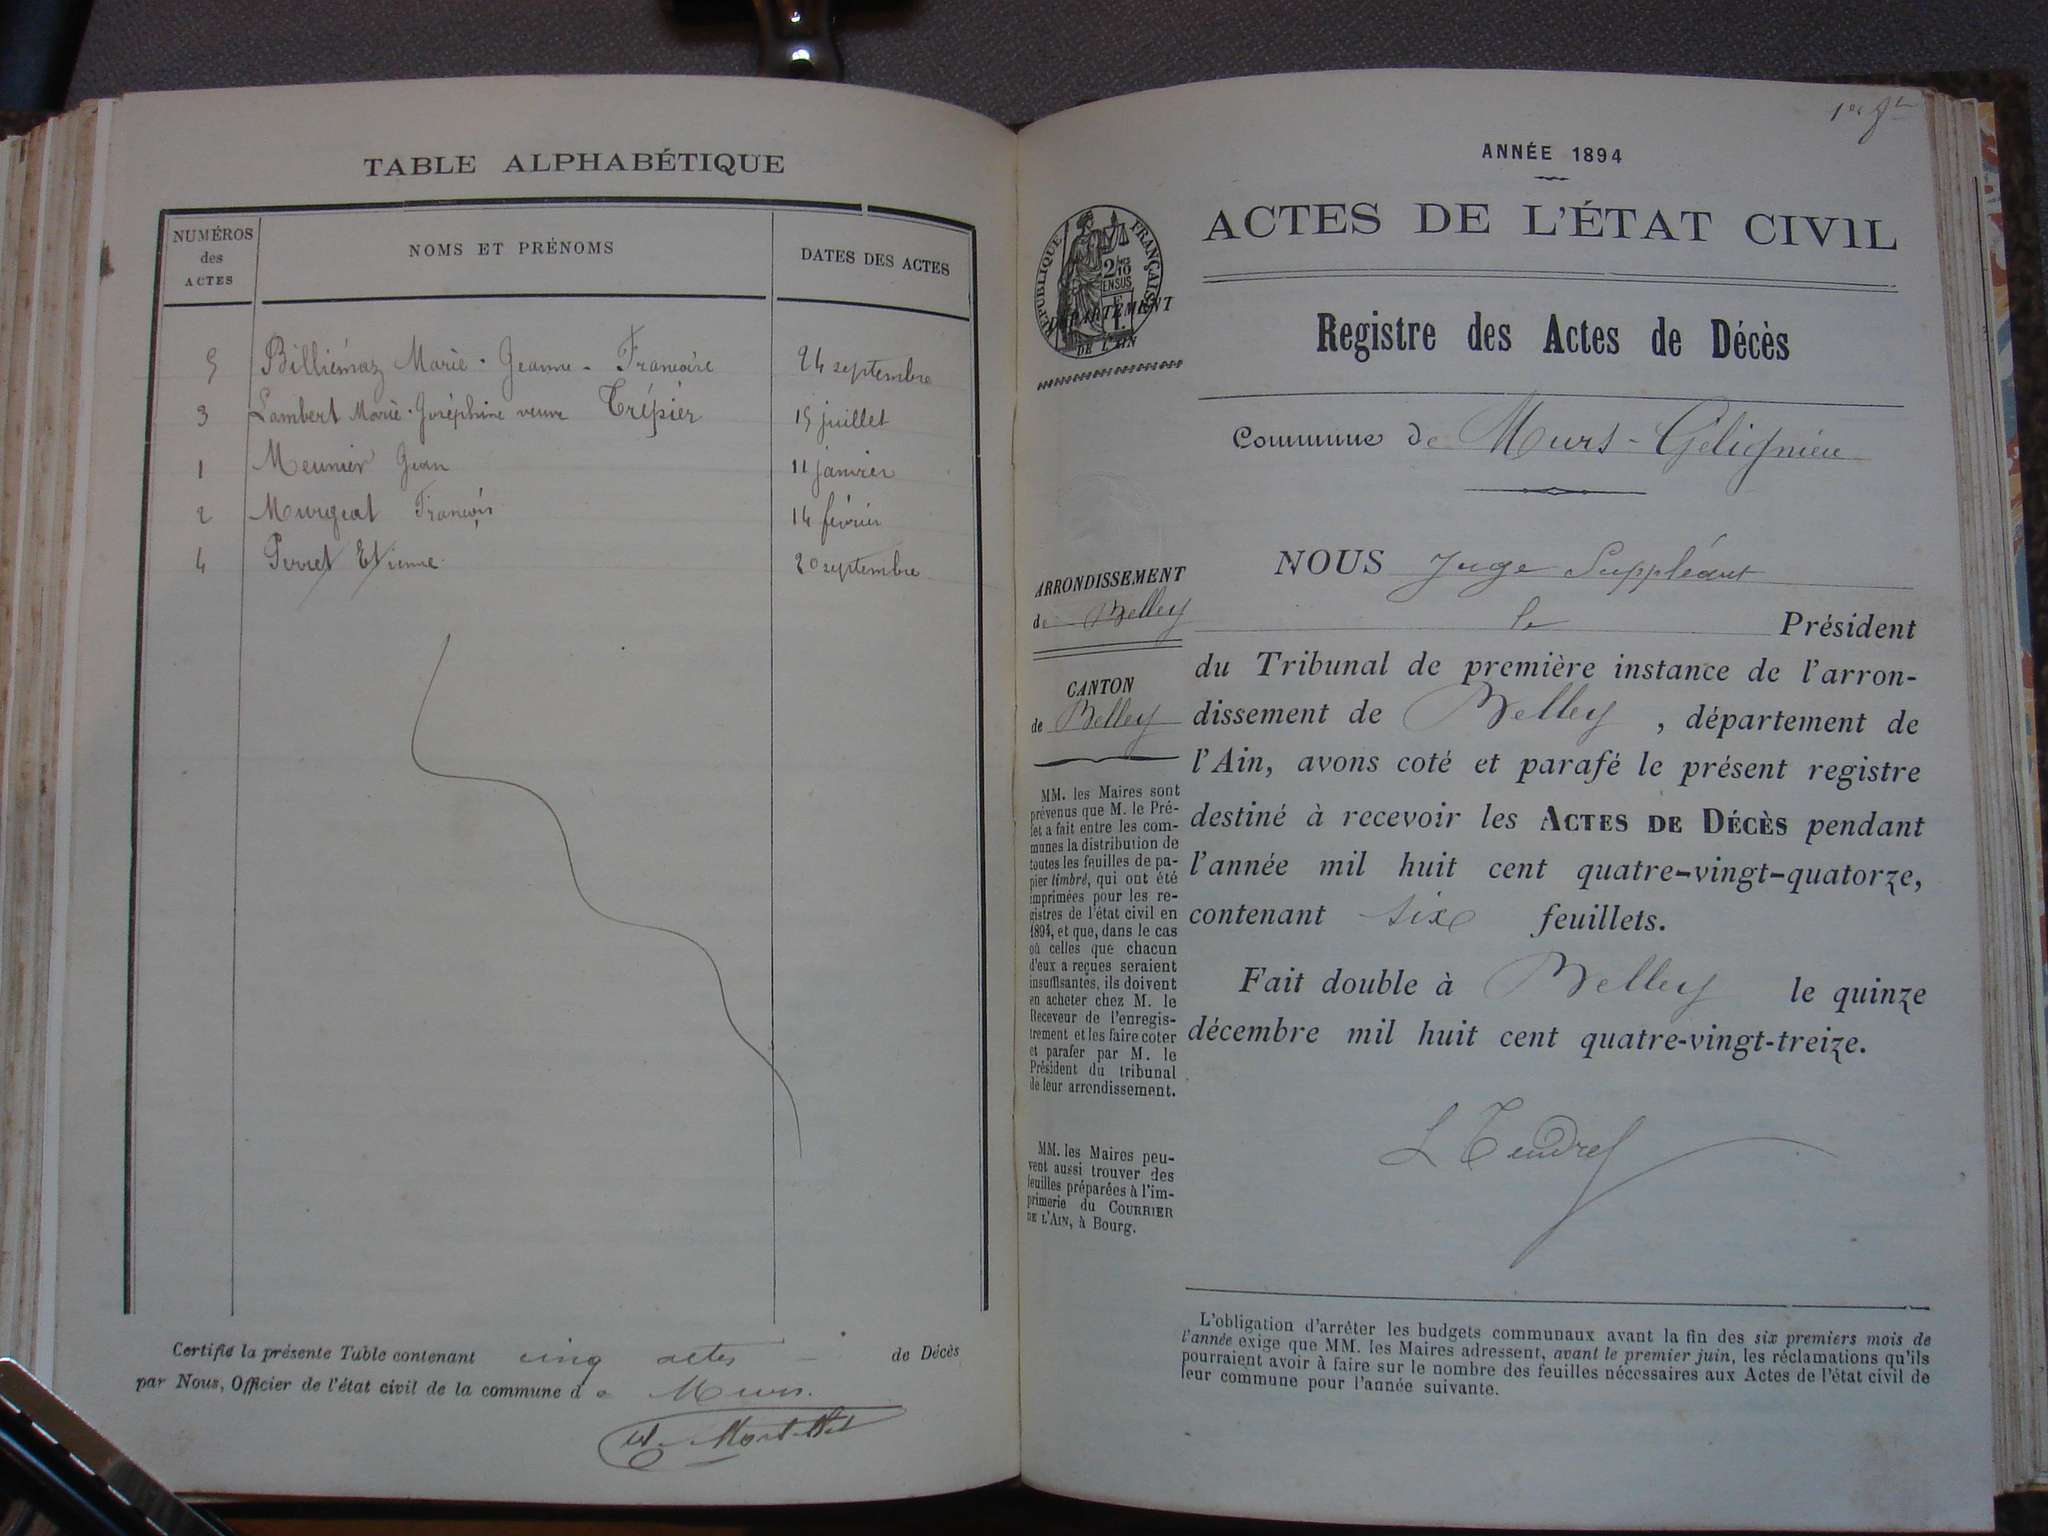 TABLE ALPHABÉTIQUE
NUMÉROS des ACTES
NOMS ET PRÉNOMS
DATES DES ACTES
5 Billiémaz Marie-Jeanne-Francoise 24 septembre
3 Lambert Marie-Joséphine veuve Trépier 15 juillet
1 Meunier Jean 11 janvier
2 Murgeat François 14 février
4 Perret Etienne 20 septembre
Certifié la présente Table contenant cinq actes de Décès
par Nous, Officier de l'état civil de la commune de Murs.
ANNÉE 1894
ACTES DE L'ÉTAT CIVIL
RÉPUBLIQUE FRANÇAISE
2/10 EN SUS
DÉPARTEMENT
DE L'AIN
Registre des Actes de Décès
Commune de Murs-Gélignieu
ARRONDISSEMENT
de Belley
CANTON
de Belley
MM. les Maires sont
prévenus que M. le Pré-
fet a fait entre les com-
munes la distribution de
toutes les feuilles de pa-
pier timbré, qui ont été
imprimées pour les re-
gistres de l'état civil en
1894, et que, dans le cas
où celles que chacun
d'eux a reçues seraient
insuffisantes, ils doivent
en acheter chez M. le
Receveur de l'enregis-
trement et les faire coter
et parafer par M. le
Président du tribunal
de leur arrondissement.
MM. les Maires peu-
vent aussi trouver des
feuilles préparées à l'im-
primerie du COURRIER
DE L'AIN, à Bourg.
NOUS Juge Suppléant
le Président
du Tribunal de première instance de l'arron-
dissement de Belley, département de
l'Ain, avons coté et parafé le présent registre
destiné à recevoir les ACTES DE DÉCÈS pendant
l'année mil huit cent quatre-vingt-quatorze,
contenant six feuillets.
Fait double à Belley le quinze
décembre mil huit cent quatre-vingt-treize.
L Tendret
L'obligation d'arrêter les budgets communaux avant la fin des six premiers mois de
l'année exige que MM. les Maires adressent, avant le premier juin, les réclamations qu'ils
pourraient avoir à faire sur le nombre des feuilles nécessaires aux Actes de l'état civil de
leur commune pour l'année suivante.